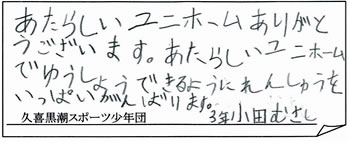 あたらしいユニホームありがと
うございます。あたらしいユニホーム
でゆうしょうできるようにれんしゅうを
いっぱいがんばります。
久喜黒潮スポーツ少年団 3年小田むさし